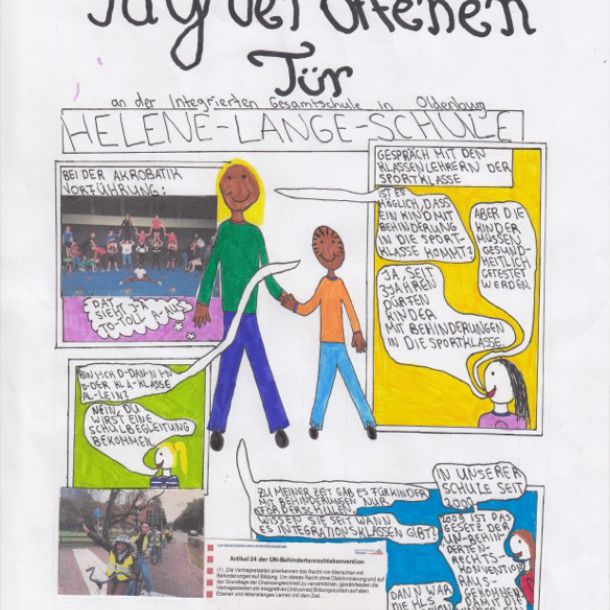 Tag der Offenen
Tür
an der Integrierten Gesamtschule in Oldenburg
HELENE-LANGE-SCHULE
BEI DER AKROBATIK
VORFÜHRUNG:
DAT
SIEHT J-A
TO-TOLL A-AUS
GESPRÄCH MIT DEN
KLASSENLEHRERN DER
SPORTKLASSE
IST ES
MÖGLICH, DASS
EIN KIND MIT
BEHINDERUNG
IN DIE SPORT-
KLASSE KOMMT?
JA, SEIT
3 JAHREN
DÜRFEN
KINDER
MIT BEHINDERUNGEN
IN DIE SPORTKLASSE.
ABER DIE
KINDER
MÜSSEN
GESUND-
HEITLICH
GETESTET
WERDEN.
D-DAN-N IN
D-DER KLA-KLASSE
A-LEIN?
NEIN, DU
WIRST EINE
SCHULBEGLEITUNG
BEKOMMEN.
ZU MEINER ZEIT GAB ES FÜR KINDER
MIT BEHINDERUNGEN NUR
FÖRDERSCHULEN
WISSEN SIE SEIT WANN
ES INTEGRATIONSKLASSEN GIBT?
IN UNSERER
SCHULE SEIT
2000.
2009 IST DAS
GESETZ DER
UN-BEHIN-
DERTEN-
RECHTS-
KONVENTION
RAUS-
GEKOMMEN
DANN WAR
DIE HLS
Artikel 24 der UN-Behindertenrechtskonvention
(1) „Die Vertragsstaaten anerkennen das Recht von Menschen mit
Behinderungen auf Bildung. Um dieses Recht ohne Diskriminierung und auf
der Grundlage der Chancengleichheit zu verwirklichen, gewährleisten die
Vertragsstaaten ein integratives (inklusives) Bildungssystem auf allen
Ebenen und lebenslanges Lernen mit dem Ziel...